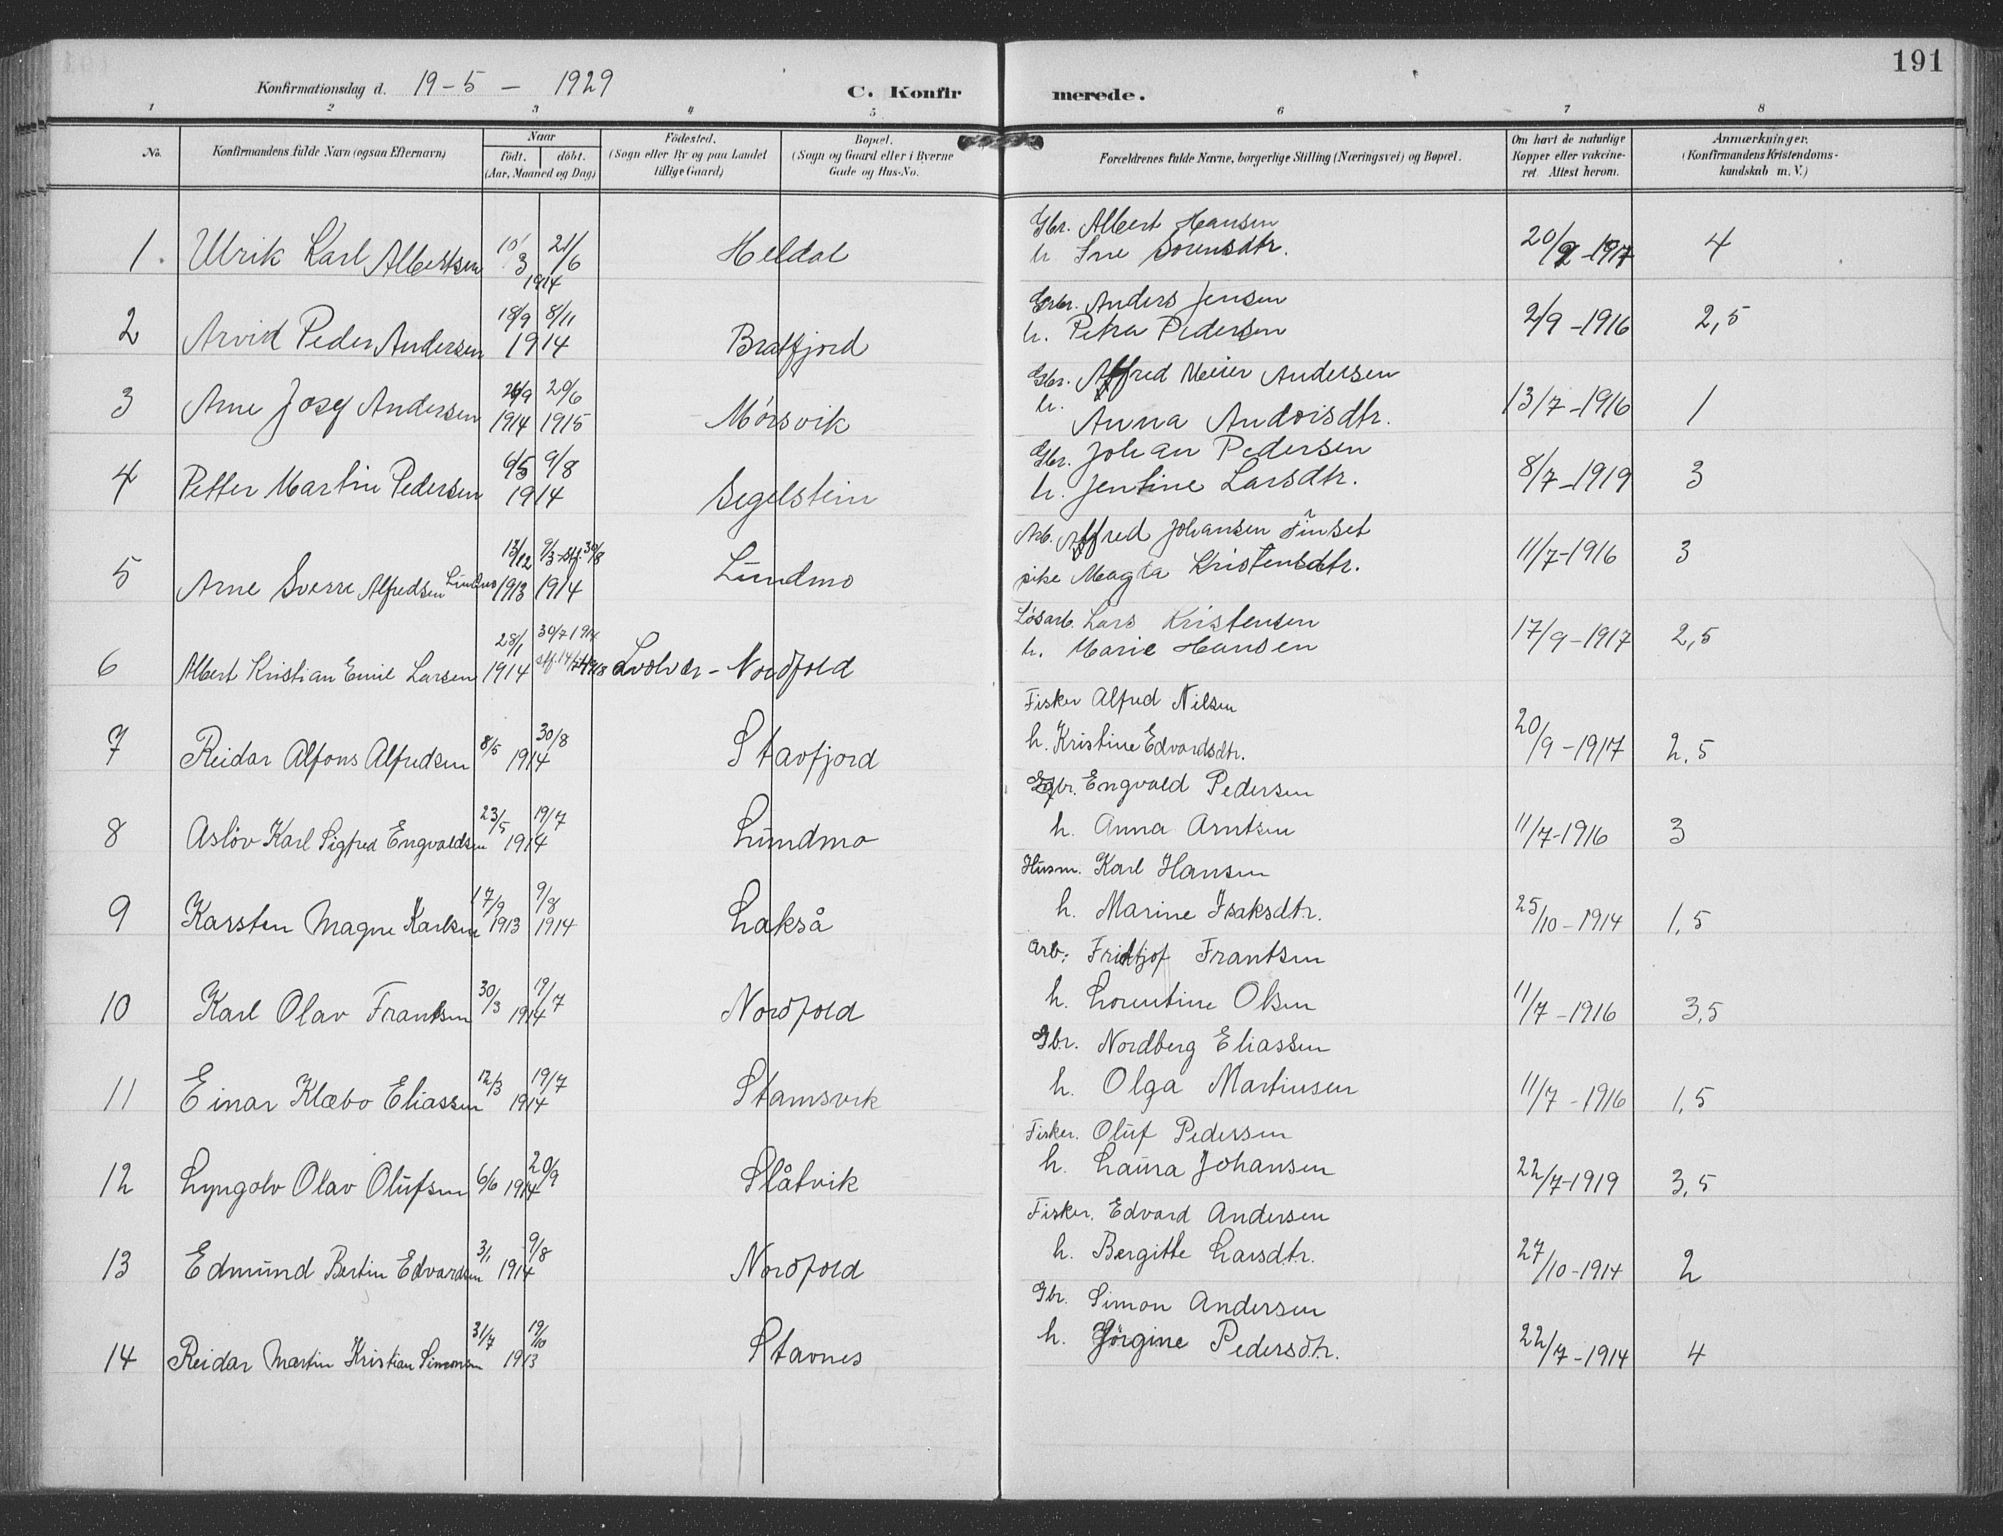 191
Konfirmationsdag d. 19-5 - 1929 C. Konfir merede.
1 2 3 4 5 6 7 8
No. Konfirmandens fulde Navn (ogsaa Efternavn) Naar født. døbt. (Aar, Maaned og Dag) Fødested. (Sogn eller By og paa Landet tillige Gaard) Bopæl. (Sogn og Gaard eller i Byerne Gade og Hus-No. Forældrenes fulde Navne, borgerlige Stilling (Næringsvei) og Bopæl. Om havt de naturlige Kopper eller vakcineret. Attest herom. Anmærkninger. (Konfirmandens Kristendomskundskab m. V.)
Gbr. Albert Hansen
1. Ulrik Karl Albertsen 10/3 21/6 1914 Heldal h Sorensdtr. 20/9-1917 4
Gbr. Anders Jensen
2 Arvid Peder Andersen 18/9 8/11 1914 Brattfjord h. Petra Pedersen 2/9-1916 2,5
Gbr. Alfred Meier Andersen
3 Arne Josef Andersen 26/9 1914 20/6 1915 Mørsvik h. Anna Andorsdtr. 13/7-1916 1
Gbr. Johan Pedersen
4 Petter Martin Pedersen 6/5 9/8 1914 Segelstein h. Jentine Larsdtr. 8/7-1919 3
Arb. Alfred Johansen Finset
5 Arne Sverre Alfredsen Lundmo 13/12 1913 9/3-stf. 30/8 1914 Lundmo pike Magda Kristensdtr. 11/7-1916 3
Løsarb. Lars Kristensen
6 Albert Kristian Emil Larsen 28/1 1914 30/7 1914 Svolvær - Nordfold h. Marie Hansen 17/9-1917 2,5
Fisker Alfred Nilsen
7 Reidar Alfons Alfredsen 8/5 30/8 1914 Stavfjord h. Kristine Edvardsdtr. 20/9-1917 2,5
Gbr. Engvald Pedersen
8 Asløv Karl Sigfred Engvaldsen 23/5 19/7 1914 Lundmo h. Anna Arntsen 11/7-1916 3
Husm. Karl Hansen
9 Karsten Magne Karlsen 17/9 1913 9/8 1914 Lakså h. Marine Isaksdtr. 25/10-1914 1,5
Arb. Fridtjof Frantsen
10 Karl Olav Frantsen 30/3 19/7 1914 Nordfold h. Lorentine Olsen 11/7-1916 3,5
Gbr. Nordberg Eliassen
11 Einar Klæbo Eliassen 12/3 19/7 1914 Stamsvik h. Olga Martinsen 11/7-1916 1,5
Fisker. Oluf Pedersen
12 Lyngolv Olav Olufsen 6/6 20/9 1914 Slåtvik h. Laura Johansen 22/7-1919 3,5
Fisker. Edvard Andersen
13 Edmund Bertin Edvardsen 3/1 9/8 1914 Nordfold h. Bergitte Larsdtr. 27/10-1914 2
Gbr. Simon Andersen
14 Reidar Martin Kristian Simonsen 31/7 19/10 1913 Stavnes h. Jörgine Pedersdtr. 22/7-1914 4